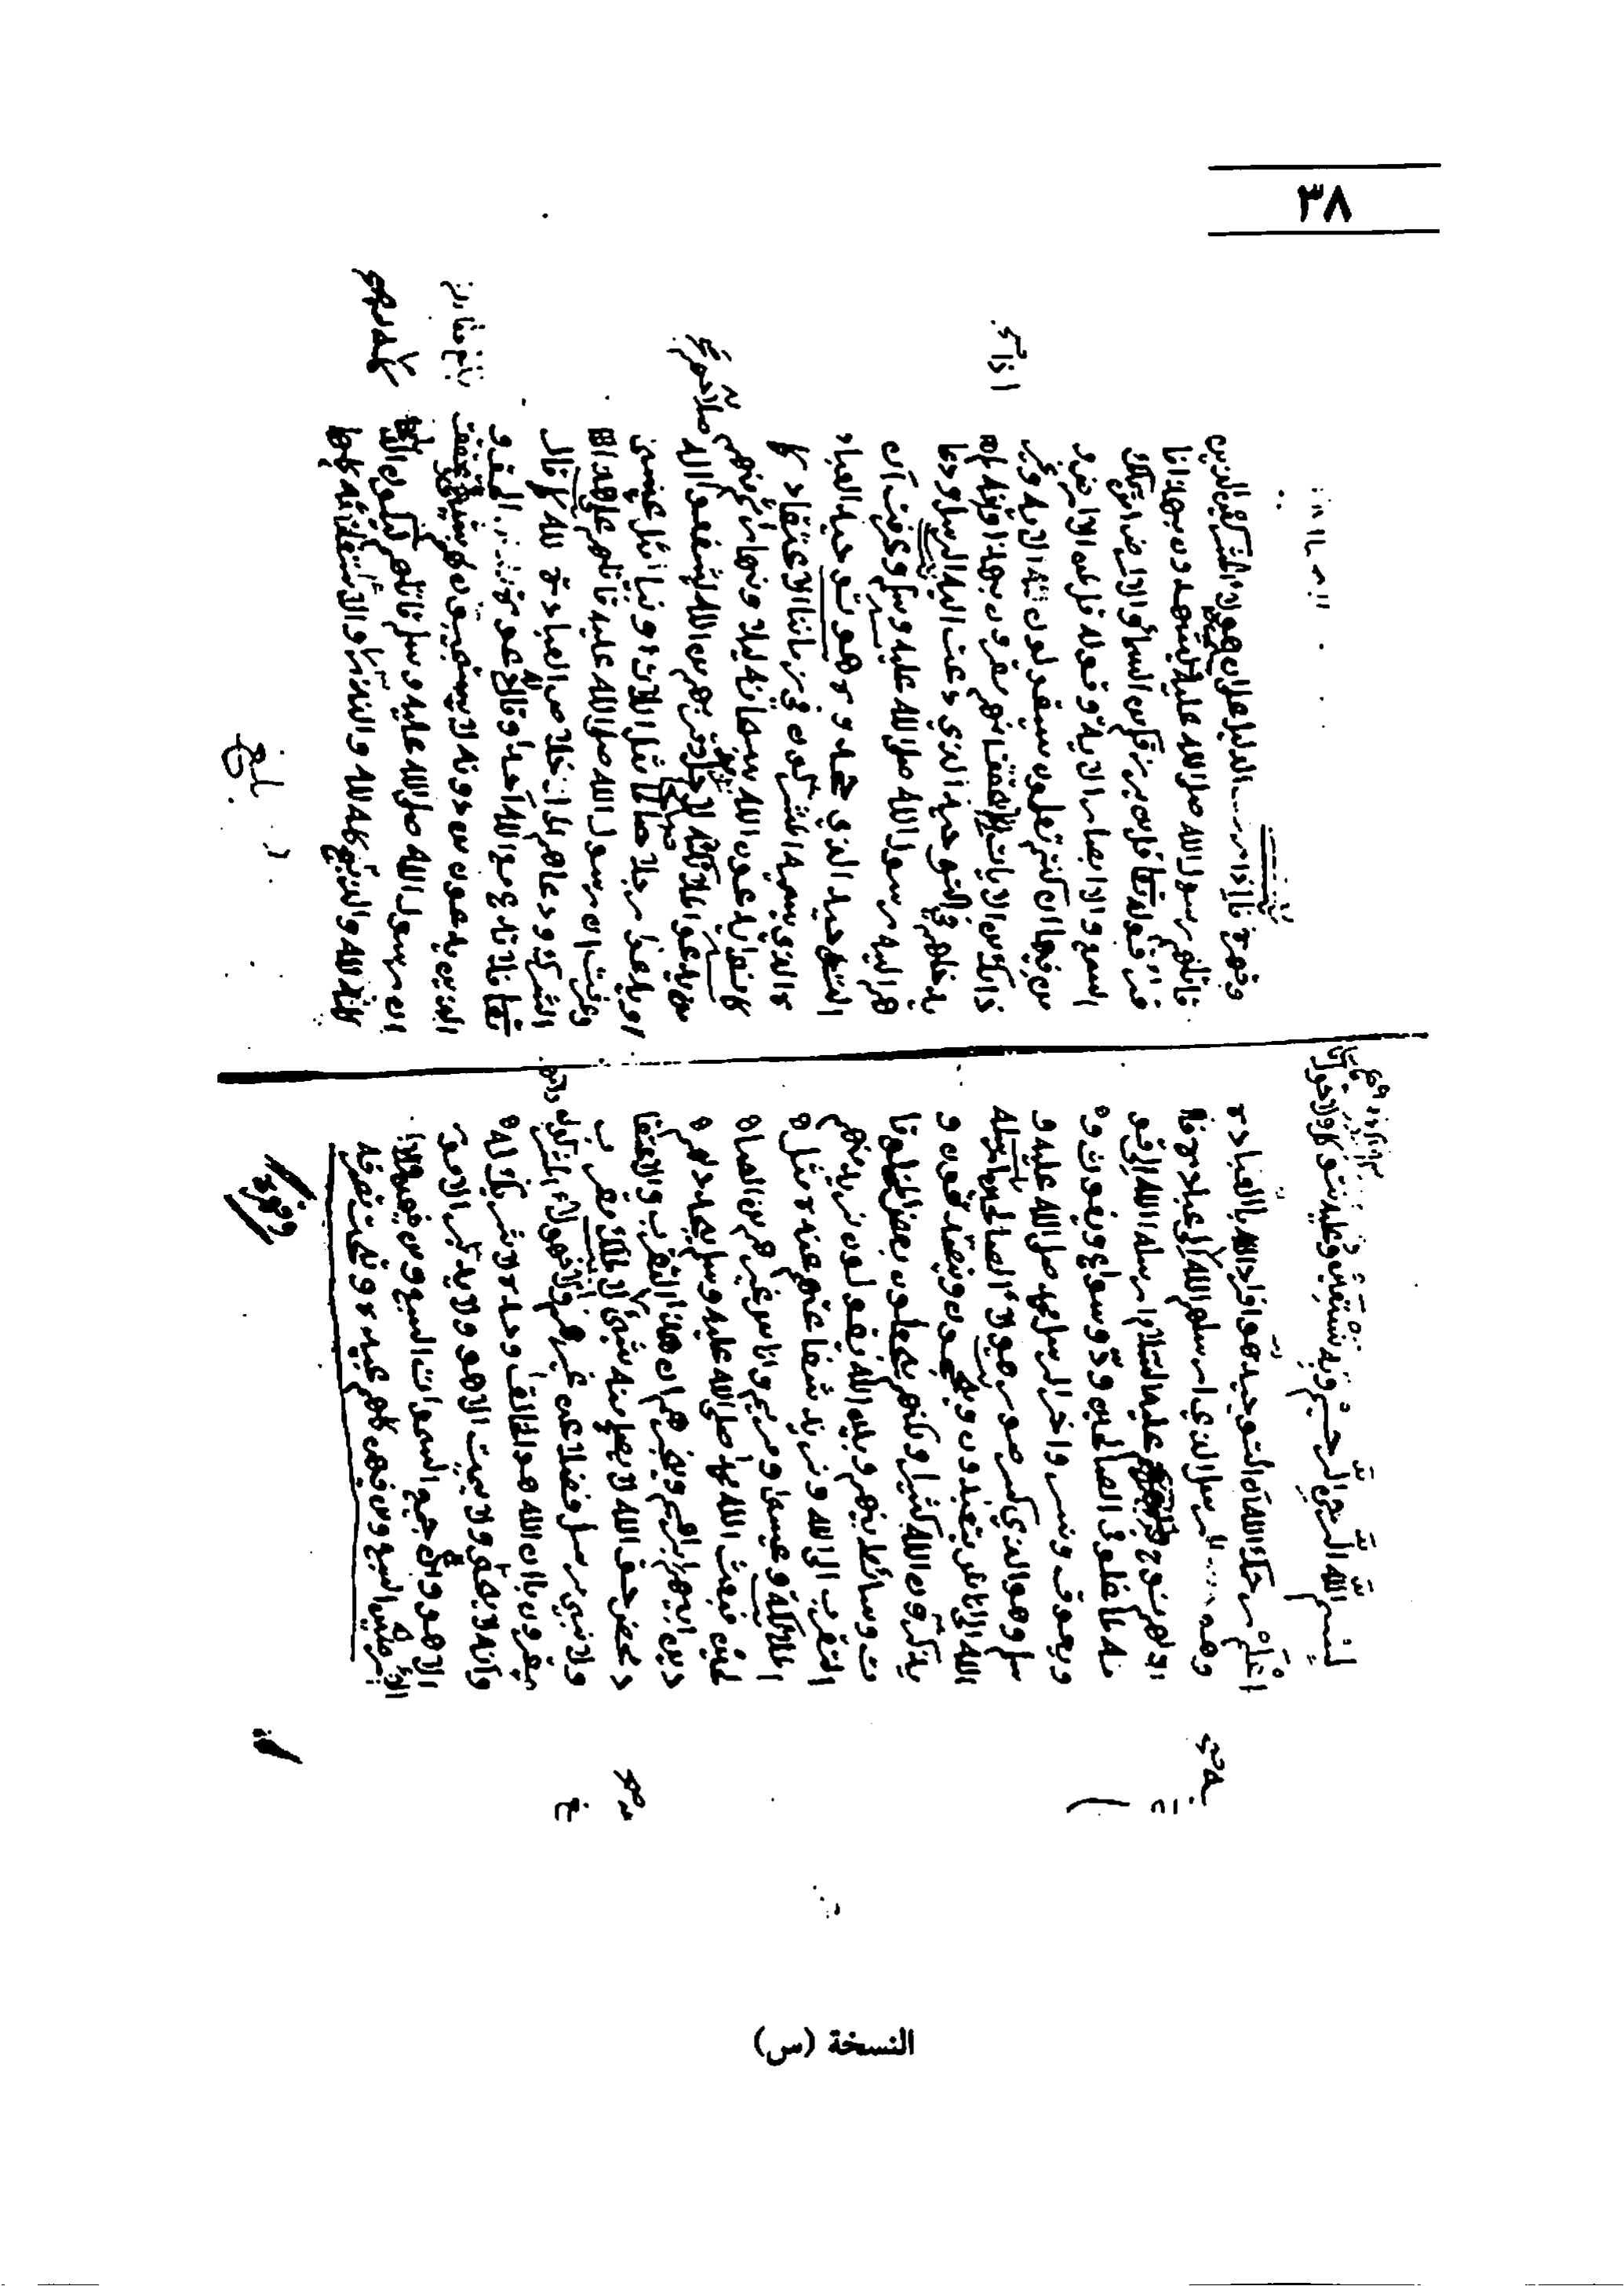 ٣٨
بسم الله الرحمن الرحيم وبه نستعين وعليه نتوكل ولا حول
اعلم رحمك الله ان التوحيد هو افراد الله بالعبادة
الرسل الذي ارسلهم الله الى عباده فا
ولهم نوح عليه السلام ارسله الله الى قو
مه لما غلوا في الصالحين ود وسواع ويغوث و
ويعوق ونسر واخر الرسل محمد صلى الله عليه و
سلم وهو الذي كسر صور هؤلاء الصالحين ارسله
الله الى اناس يتعبدون ويحجون ويتصدقون و
يذكرون الله كثيرا ولكنهم يجعلون بعض المخلوقا
ت وسائط بينهم وبين الله يقولون نريد منهم
التقرب الى الله ونريد شفاعتهم عنده مثل
الملائكة وعيسى ومريم واناس غيرهم من الصا
لحين فبعث الله محمدا صلى الله عليه وسلم يجدد لهم
دين ابيهم ابراهيم ويخبرهم ان هذا التقرب والاعتقا
د محض حق الله لا يصلح منه شيء لا لملك مقرب
ولا نبي مرسل فضلا عن غيرهم والا فهولاء المشركون
يقرون بان الله هو الخالق وحده لا شريك له
وانه لا ولا يميت الا هو ولا يدبر الامور
الا هو وان جميع السموات السبع ومن فيهن
الارضين السبع ومن فيهن كلهم عبيده وتحت تصرفه
وقهره
وقهره فاذا الدليل على ان هولاء المشركين الذين
قاتلهم رسول الله صلى الله عليه يشهدون بهذا
فاقرأ قوله تعالى قل من يرزقكم من السماء والارض امن يملك
السمع والابصار الاية وقوله قل لمن الارض و
من فيها ان كنتم تعلمون سيقولون لله الاية وغير
ذلك من الايات فاذا تحققت انهم يقرون بهذا وانه لم
يدخلهم في التوحيد الذي دعت اليه الرسل ودعا
هم اليه رسول الله صلى الله عليه وسلم وعرفت ان
التوحيد الذي جحدوه هو توحيد العباد
ه الذي يسميه المشركون في زماننا الاعتقاد كا
كانوا يدعون الله سبحانه ليلا ونهارا ثم منهم
من يدعو الملائكة لاجل صلاحهم وقربهم من الله ليشفعوا له
او يدعو رجلا صالحا مثل اللات او نبيا مثل عيسى
وعرفت ان رسول الله صلى الله عليه قاتلهم على هذا
الشرك ودعاهم الى اخلاص العبادة لله كما قال
تعالى فلا تدعو مع الله احدا وقال له دعوة الحق و
الذين يدعون من دونه لا يستجيبون لهم بشيء وتحققت
ان رسول الله صلى الله عليه وسلم قاتلهم ليكون الدعاء
كله لله والذبح كله لله والنذر كله لله والاستغاثة كلها
بلغ
النسخة (س)